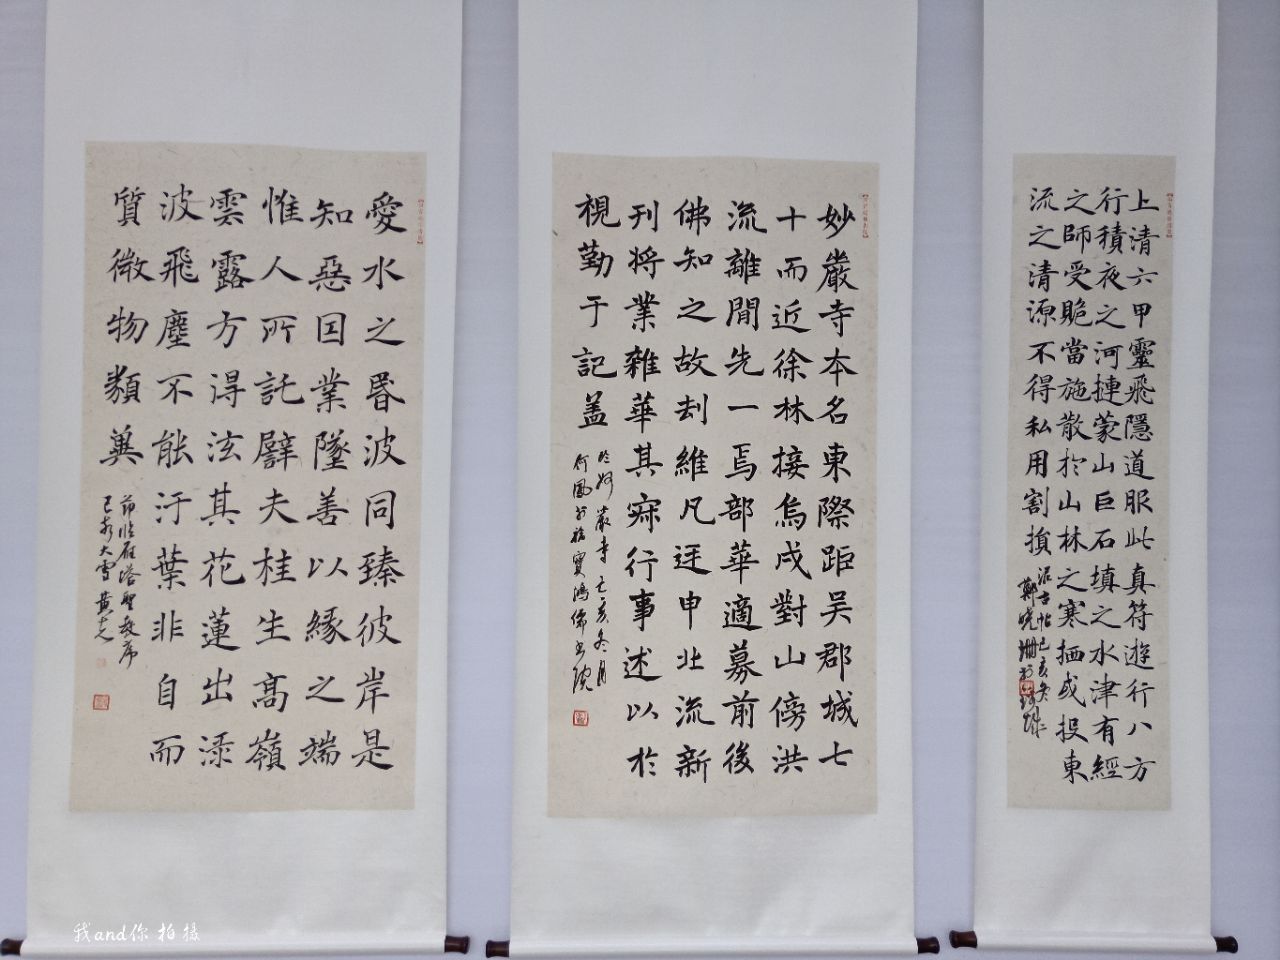 上清六甲靈飛隱道服此真符遊行八方
行積夜之河揵蒙山巨石填之水津有經
之師受貺當施散於山林之寒栖或投東
流之清源不得私用割損
古帖己亥冬
鄭曉珊於
妙嚴寺本名東際距吳郡城七
十而近徐林接烏戍對山傍洪
流離間先一焉部華適募前後
佛知之故刦維凡迂申北流新
刊將業雜華其寂行事述以於
視勤于記盖
臨妙嚴寺己亥冬月
何鳳
愛水之昬波同臻彼岸是
知惡因業墜善以緣之端
惟人所託譬夫桂生高嶺
雲露方得泫其花蓮出淥
波飛塵不能汙葉非自而
質微物類兾
節臨雁塔聖教序
己亥大雪黄
我and你 拍摄